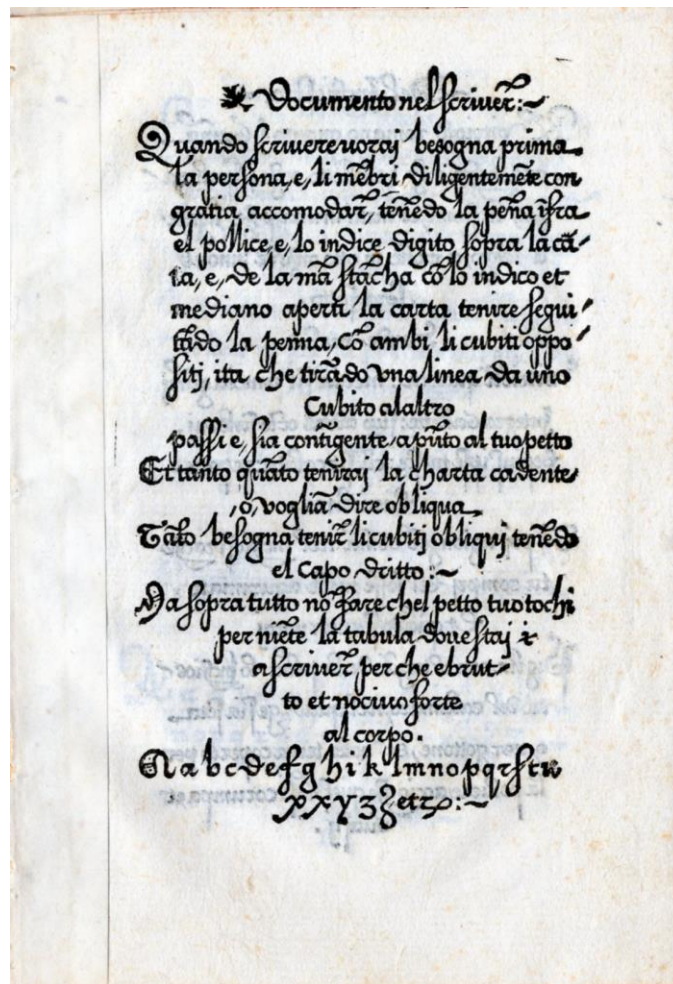 Documento nel scriuer̃:~
Quando scriuere uorai besogna prima
la persona, e, li mẽbri diligentemẽte con
gratia accomodar̃, tenẽdo la pẽna ĩfra
el pollice, e, lo indice digito, sopra la cã/
ia, e, de la mã stãcha cõ lo indico et
mediano aperti la carta tenire segui/
tãdo la penna, cõ ambi li cubiti oppo/
sitj, ita che tirãdo vna linea da uno
Cubito alaltro
passi e, sia contĩgente apũto al tuo petto
Et tanto quãto tenirai la charta cadente,
,o, vogliã dire obliqua
Tãto besogna tenir̃ li cubitj obliquj tenẽdo
el capo dritto:~
Ma sopra tutto nõ fare chel petto tuo tochi
per niẽte la tabula doue staj i
a scriuer̃, per che e brut/
to et nociuo forte
al corpo.
A a b c d e f g h i k l m n o p q r s t u
x x y z & etz:~